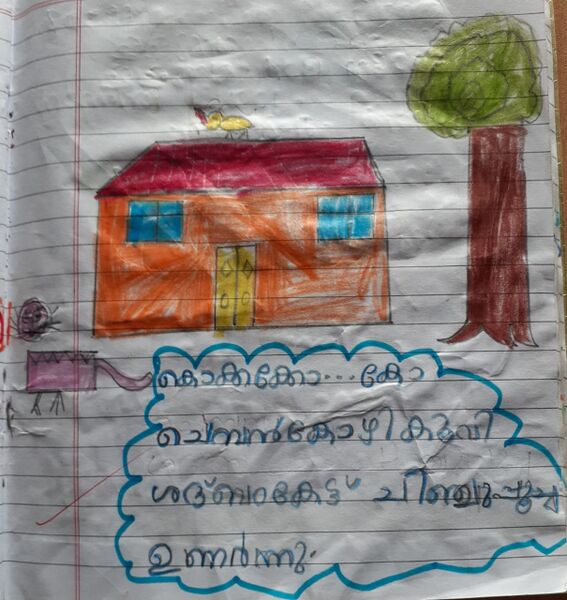 കൊക്കക്കോ...കോ
ചെമ്പൻകോഴി കൂവി
ശദ്ബംകേട്ട് ചിഞ്ചുപ്പൂച്ച
ഉണർന്നു.